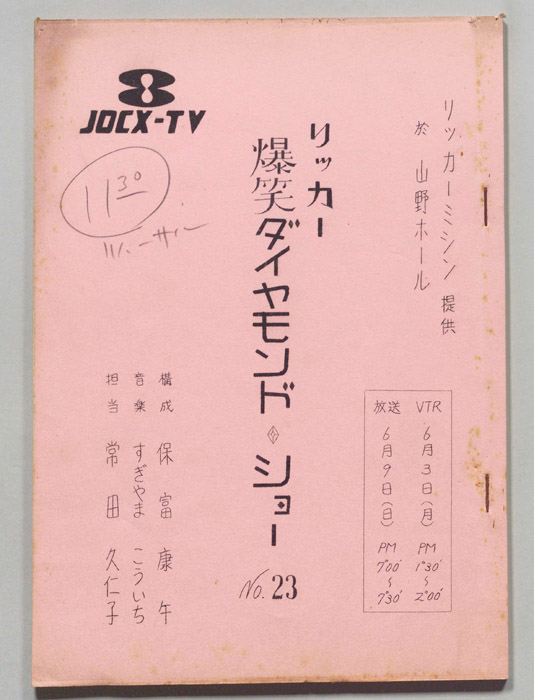 リッカーミシン 提供
於 山野ホール
JOCX-TV
リッカー
爆笑ダイヤモンド◇ショー
No. 23
11 30
リハーサル
VTR 6月3日(月) PM 1°30′～2°00′
放送 6月9日(日) PM 7°00′～7°30′
構成 保富康午
音楽 すぎやまこういち
担当 常田久仁子